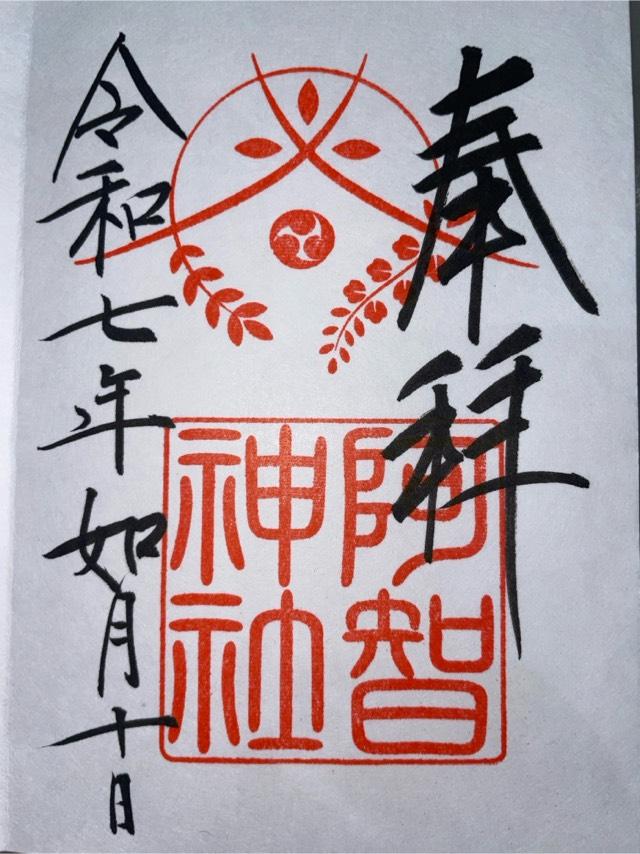 奉拝
阿智
神社
令和七年如月十日